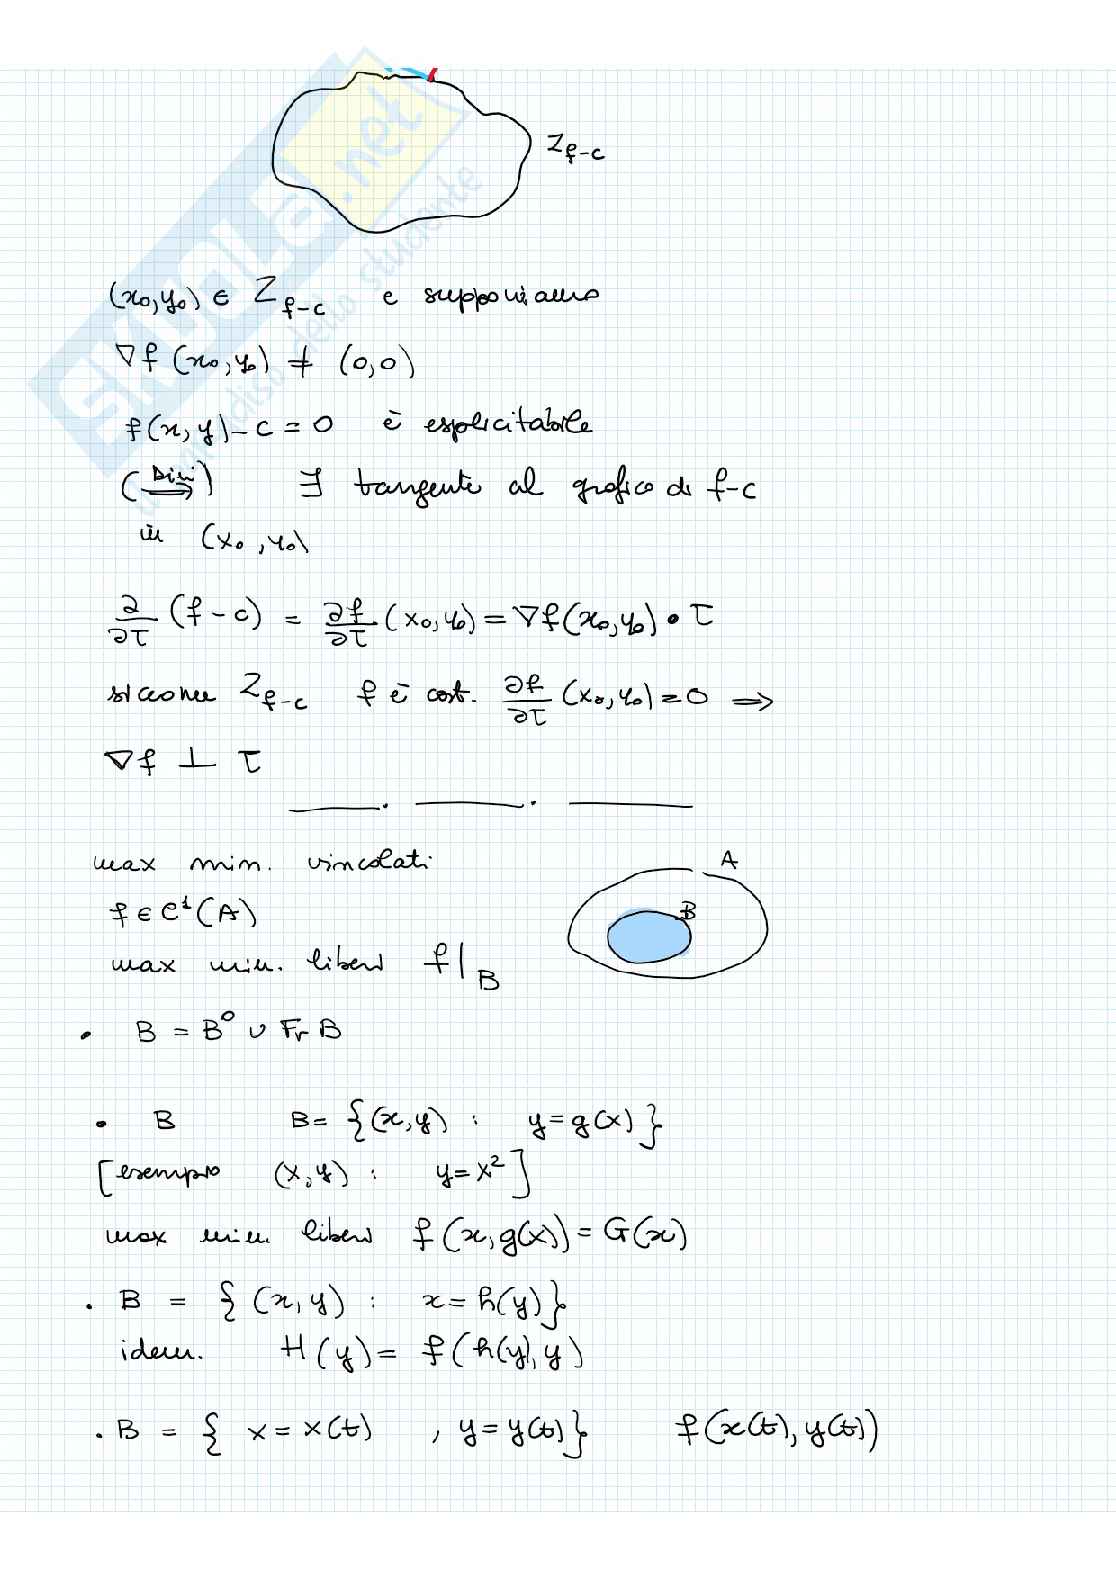 Z_{f-c}
(x₀,y₀) ∈ Z_{f-c} e supponiamo
∇f (x₀,y₀) ≠ (0,0)
f(x,y)-c=0 è esplicitabile
(⟹ Dini) ∃ tangente al grafico di f-c
in (x₀,y₀)
∂/∂τ (f-c) = ∂f/∂τ (x₀,y₀) = ∇f(x₀,y₀) • τ
siccome Z_{f-c} f è cost. ∂f/∂τ (x₀,y₀)=0 ⟹
∇f ⊥ τ
max min. vincolati
A
B
f ∈ C¹(A)
max min. liberi f|_B
• B = B⁰ ∪ Fr B
• B B= {(x,y) : y=g(x)}
[esempio (x,y) : y=x²]
max min. liberi f(x,g(x))=G(x)
• B = {(x,y) : x=h(y)}
idem. H(y)= f(h(y),y)
• B = { x=x(t) , y=y(t)} f(x(t),y(t))
SKUOLA.net
dello studente